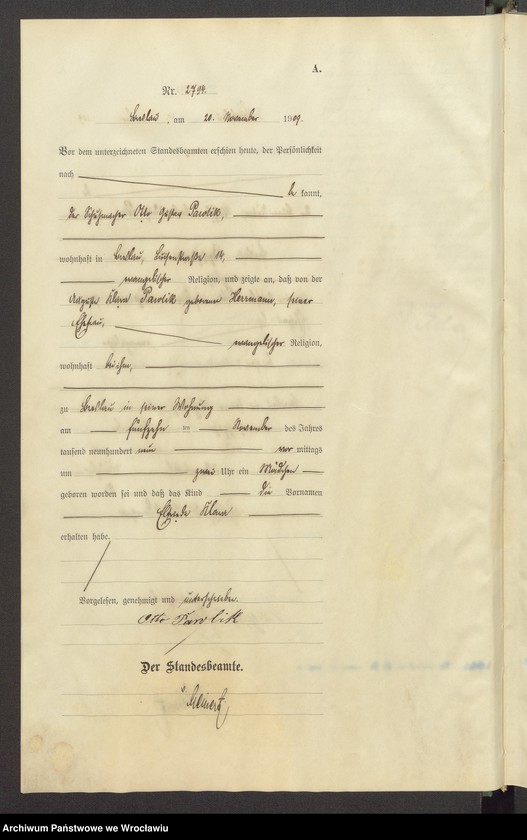 A.
Nr. 2794.
Breslau, am 20. November 1909.
Vor dem unterzeichneten Standesbeamten erschien heute, der Persönlichkeit
nach
be kannt,
der Schuhmacher Otto Gustav Pawlik,
wohnhaft in Breslau, 14,
evangelischer Religion, und zeigte an, daß von der
Auguste Klara Pawlik geborenen Herrmann, seiner
Ehefrau,
evangelischer Religion,
wohnhaft bei ihm,
zu Breslau in seiner Wohnung
am fünfzehn ten November des Jahres
tausend neunhundert neun vor mittags
um zwei Uhr ein Mädchen
geboren worden sei und daß das Kind die Vornamen
Elfriede Klara
erhalten habe.
Vorgelesen, genehmigt und unterschrieben.
Otto Pawlik
Der Standesbeamte.
Archiwum Państwowe we Wrocławiu